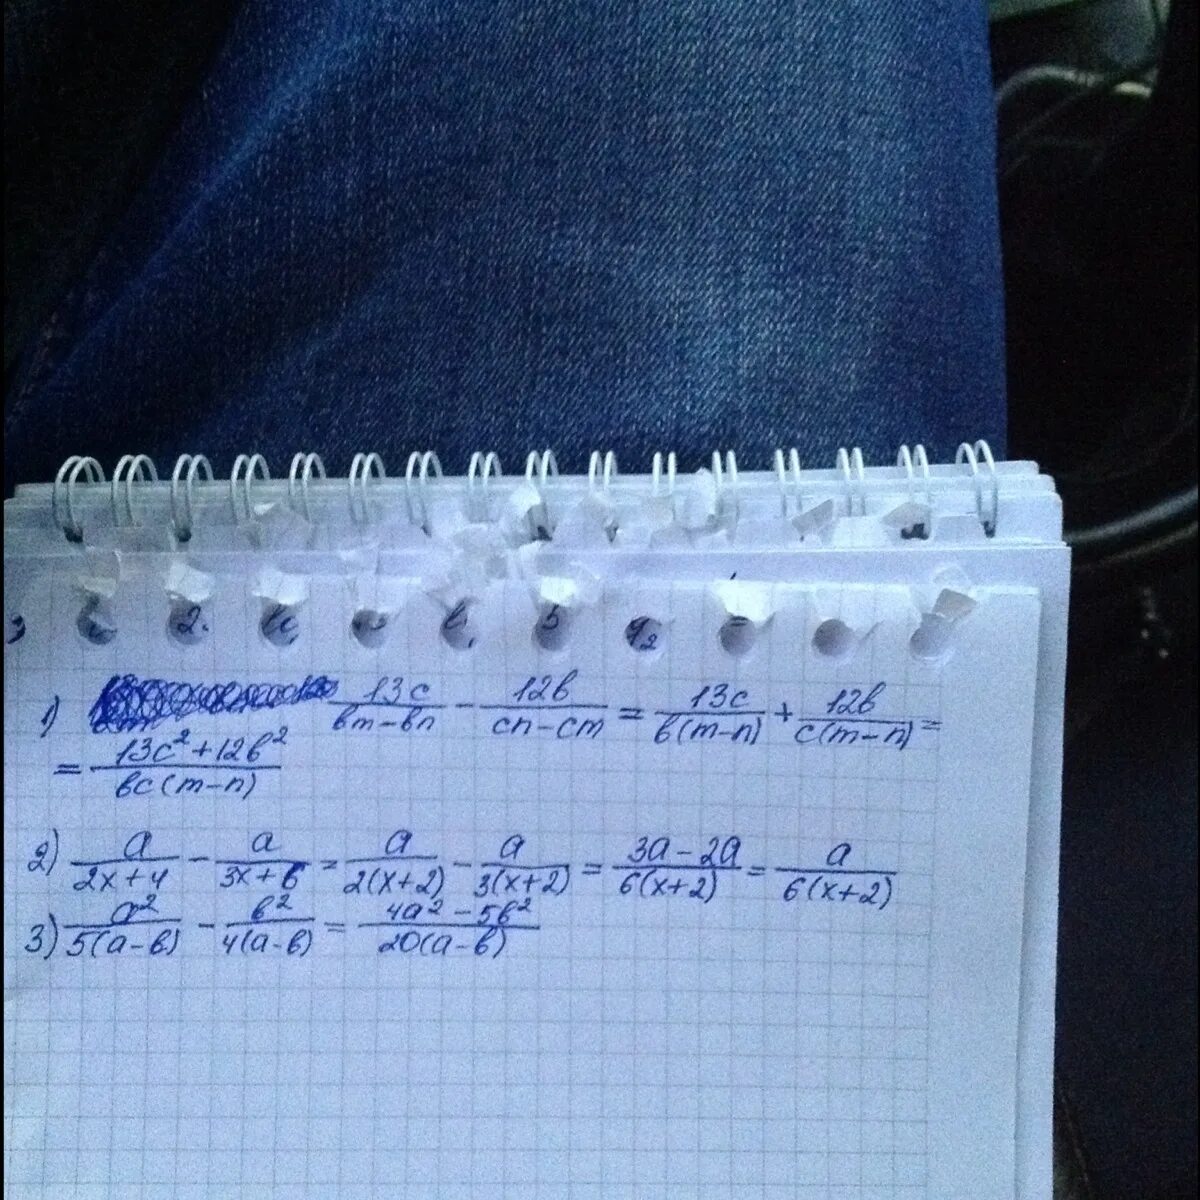 1) 13c/(вm-вn) - 12в/(cn-cm) = 13c/(в(m-n)) + 12в/(c(m-n)) =
= (13c²+12в²)/(вc(m-n))
2) a/(2x+4) - a/(3x+6) = a/(2(x+2)) - a/(3(x+2)) = (3a-2a)/(6(x+2)) = a/(6(x+2))
3) a²/(5(a-в)) - в²/(4(a-в)) = (4a²-5в²)/(20(a-в))